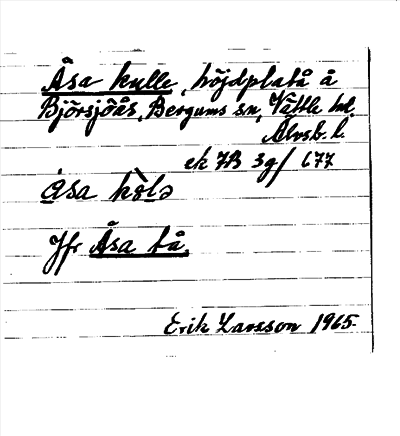 Åsa kulle, höjdplatå å
Björsjöås, Bergums sn, Vättle hd.
Älvsb. l.
ek 7B 3g/ 677
åsa kòlə
Jfr Åsa tå.
Erik Larsson 1965.